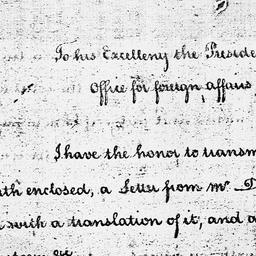 To his Excelleny the Preside
Office for foreign affairs
I have the honor to transm
ith enclosed, a Letter from Mr. D
with a translation of it, and a